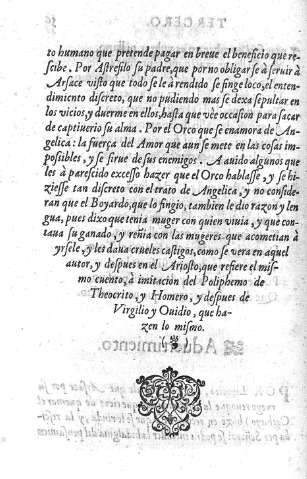 to humano que pretende pagar en breue el beneficio que re-
scibe. Por Astresilo su padre, que por no obligarse à seruir à
Arsace visto que todo se le à rendido se finge loco, el enten-
dimiento discreto, que no pudiendo mas se dexa sepultar en
los vicios, y duerme en ellos, hasta que vee occasion para sacar
de captiuerio su alma. Por el Orco que se enamora de An-
gelica: la fuerça del Amor que aun se mete en las cosas im-
possibles, y se sirue de sus enemigos. A auido algunos que
les à parescido excesso hazer que el Orco hablasse, y se hi-
ziesse tan discreto con el trato de Angelica, y no conside-
ran que el Boyardo, que lo fingio, tambien le dio razon y len
gua, pues dixo que tenia muger con quien viuia, y que con-
taua su ganado, y reñia con las mugeres que acometian à
yrsele, y les daua crueles castigos, como se vera en aquel
autor, y despues en el Ariosto, que refiere el mis-
mo cuento, à imitacion del Poliphemo de
Theocrito, y Homero, y despues de
Virgilio y Ouidio, que ha-
zen lo mismo.